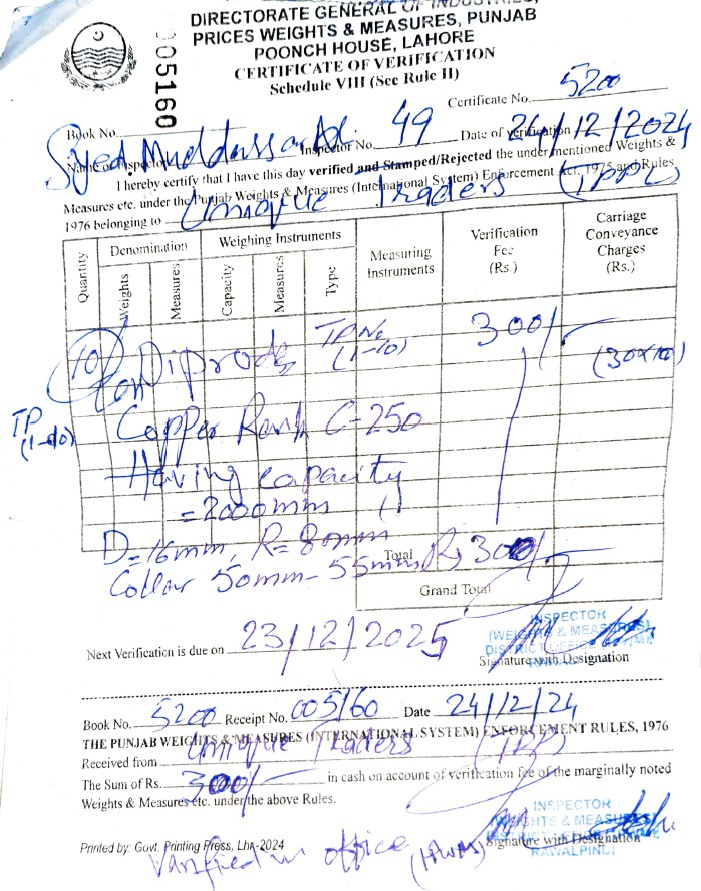 DIRECTORATE GENERAL OF INDUSTRIES,
PRICES WEIGHTS & MEASURES, PUNJAB
POONCH HOUSE, LAHORE
CERTIFICATE OF VERIFICATION
Schedule VIII (See Rule II)
005160
Certificate No. 5200
Book No.
Name of Inspector Syed Inspector No. 49 Date of verification 24/12/2024
I hereby certify that I have this day verified and Stamped/Rejected the undermentioned Weights &
Measures etc. under the Punjab Weights & Measures (International System) Enforcement Act, 1975 and Rules
1976 belonging to Unique Traders (TPPL)
Quantity
Denomination
Weights
Measures
Weighing Instruments
Capacity
Measures
Type
Measuring Instruments
Verification Fee (Rs.)
Carriage Conveyance Charges (Rs.)
10 Diprods TP No (1-10) 300/- (30x10)
TP (1-10)
Copper C-250
Having capacity
=2000mm
D=16mm, R=80mm
Collar 50mm-55mm
Total Rs 300/-
Grand Total
Next Verification is due on 23/12/2025
INSPECTOR
(WEIGHTS & MEASURES)
Signature with Designation
Book No. 5200 Receipt No. 005160 Date 24/12/24
THE PUNJAB WEIGHTS & MEASURES (INTERNATIONAL SYSTEM) ENFORCEMENT RULES, 1976
Received from Unique Traders
The Sum of Rs. 300/- in cash on account of verification fee of the marginally noted
Weights & Measures etc. under the above Rules.
INSPECTOR
(WEIGHTS & MEASURES)
Signature with Designation
RAWALPINDI
Printed by: Govt. Printing Press, Lhr-2024
Varified in office